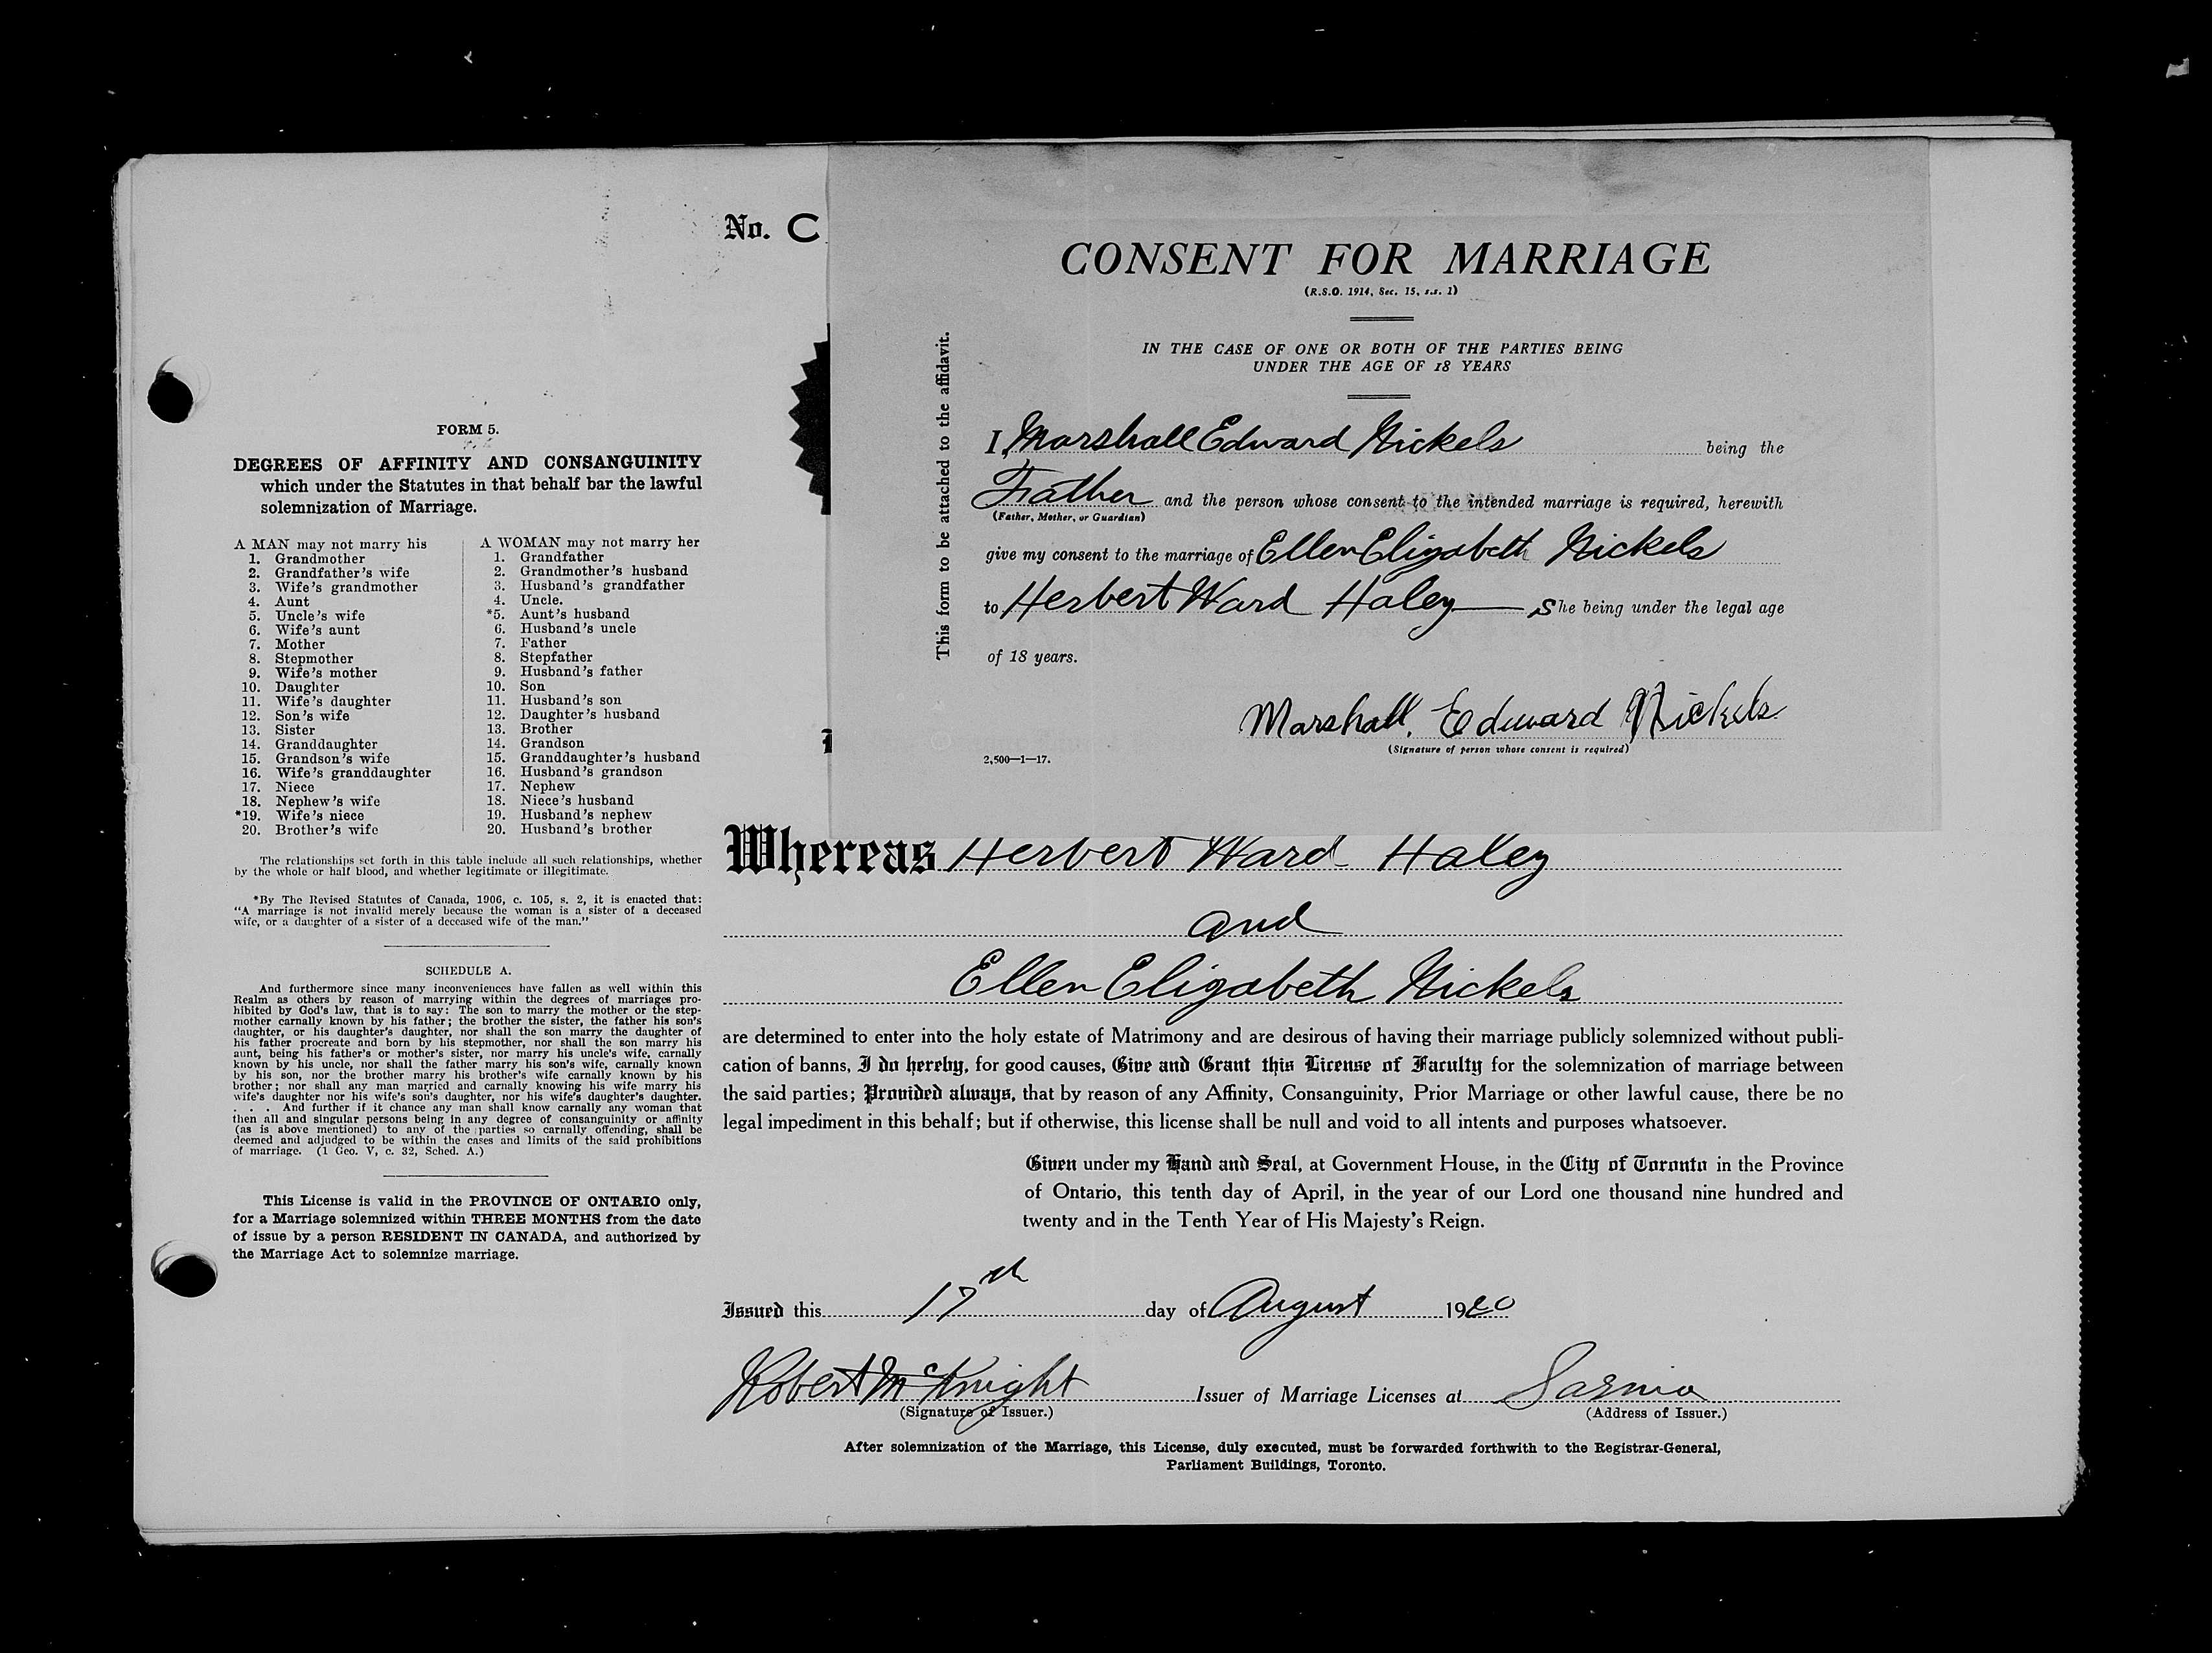 FORM 5.
DEGREES OF AFFINITY AND CONSANGUINITY
which under the Statutes in that behalf bar the lawful
solemnization of Marriage.
A MAN may not marry his
1. Grandmother
2. Grandfather's wife
3. Wife's grandmother
4. Aunt
5. Uncle's wife
6. Wife's aunt
7. Mother
8. Stepmother
9. Wife's mother
10. Daughter
11. Wife's daughter
12. Son's wife
13. Sister
14. Granddaughter
15. Grandson's wife
16. Wife's granddaughter
17. Niece
18. Nephew's wife
*19. Wife's niece
20. Brother's wife
A WOMAN may not marry her
1. Grandfather
2. Grandmother's husband
3. Husband's grandfather
4. Uncle.
*5. Aunt's husband
6. Husband's uncle
7. Father
8. Stepfather
9. Husband's father
10. Son
11. Husband's son
12. Daughter's husband
13. Brother
14. Grandson
15. Granddaughter's husband
16. Husband's grandson
17. Nephew
18. Niece's husband
19. Husband's nephew
20. Husband's brother
The relationships set forth in this table include all such relationships, whether
by the whole or half blood, and whether legitimate or illegitimate.
*By The Revised Statutes of Canada, 1906, c. 105, s. 2, it is enacted that:
"A marriage is not invalid merely because the woman is a sister of a deceased
wife, or a daughter of a sister of a deceased wife of the man."
SCHEDULE A.
And furthermore since many inconveniences have fallen as well within this
Realm as others by reason of marrying within the degrees of marriages pro-
hibited by God's law, that is to say: The son to marry the mother or the step-
mother carnally known by his father; the brother the sister, the father his son's
daughter, or his daughter's daughter, nor shall the son marry the daughter of
his father procreate and born by his stepmother, nor shall the son marry his
aunt, being his father's or mother's sister, nor marry his uncle's wife, carnally
known by his uncle, nor shall the father marry his son's wife, carnally known
by his son, nor the brother marry his brother's wife carnally known by his
brother; nor shall any man married and carnally knowing his wife marry his
wife's daughter nor his wife's son's daughter, nor his wife's daughter's daughter.
. . . And further if it chance any man shall know carnally any woman that
then all and singular persons being in any degree of consanguinity or affinity
(as is above mentioned) to any of the parties so carnally offending, shall be
deemed and adjudged to be within the cases and limits of the said prohibitions
of marriage. (1 Geo. V, c. 32, Sched. A.)
This License is valid in the PROVINCE OF ONTARIO only,
for a Marriage solemnized within THREE MONTHS from the date
of issue by a person RESIDENT IN CANADA, and authorized by
the Marriage Act to solemnize marriage.
No. C
This form to be attached to the affidavit.
CONSENT FOR MARRIAGE
(R.S.O. 1914, Sec. 15, s.s. 1)
IN THE CASE OF ONE OR BOTH OF THE PARTIES BEING
UNDER THE AGE OF 18 YEARS
I, Marshall Edward Nickels being the
Father and the person whose consent to the intended marriage is required, herewith
(Father, Mother, or Guardian)
give my consent to the marriage of Ellen Elizabeth Nickels
to Herbert Ward Haley She being under the legal age
of 18 years.
Marshall, Edward Nickels.
(Signature of person whose consent is required)
2,500—1—17.
Whereas Herbert Ward Haley
and
Ellen Elizabeth Nickels
are determined to enter into the holy estate of Matrimony and are desirous of having their marriage publicly solemnized without publi-
cation of banns, I do hereby, for good causes, Give and Grant this License of Faculty for the solemnization of marriage between
the said parties; Provided always, that by reason of any Affinity, Consanguinity, Prior Marriage or other lawful cause, there be no
legal impediment in this behalf; but if otherwise, this license shall be null and void to all intents and purposes whatsoever.
Given under my Hand and Seal, at Government House, in the City of Toronto in the Province
of Ontario, this tenth day of April, in the year of our Lord one thousand nine hundred and
twenty and in the Tenth Year of His Majesty's Reign.
Issued this 17th day of August 1920
Robert McKnight Issuer of Marriage Licenses at Sarnia
(Signature of Issuer.) (Address of Issuer.)
After solemnization of the Marriage, this License, duly executed, must be forwarded forthwith to the Registrar-General,
Parliament Buildings, Toronto.